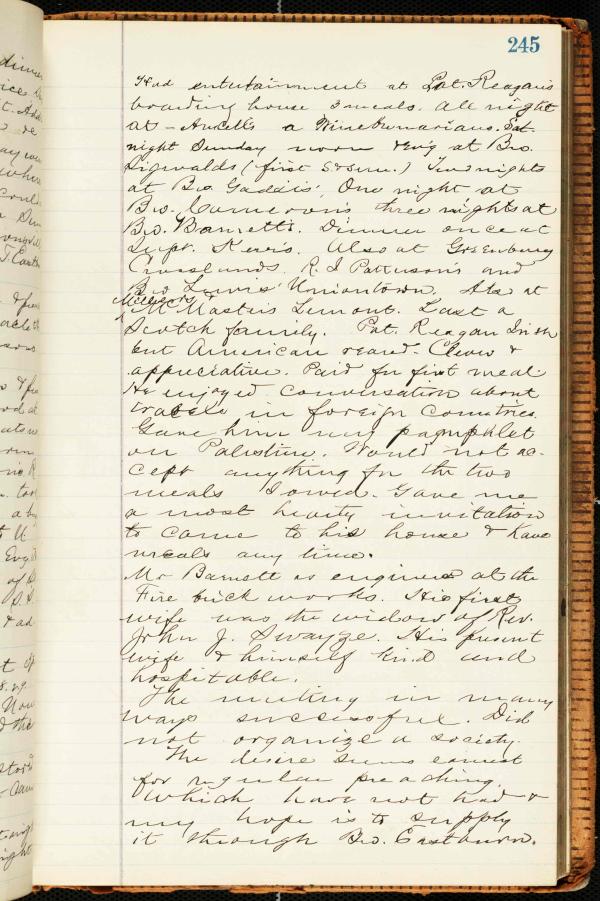 245
Had entertainment at Pat. Reagan's
boarding house 3 meals. All night
at – a Sat.
night Sunday noon & ev'g at Bro.
(first S & serv.) Two nights
at Bro. Gaddis'. One night at
Bro. Cameron's three nights at
Bro. Barnett's. Dinner once at
Supt. Also at Greenbury
Crosslands. R. I Patterson's and
Bro Lewis' Uniontown. Ate at
McMastais Lemont. Last a
Scotch family. Pat. Reagan Irish
but American reared. Clever &
appreciative. Paid for first meal.
He enjoyed conversation about
travels in foreign countries.
Gave him my pamphlet
on Palestine. Would not ac-
cept anything for the two
meals I owed. Gave me
a most hearty invitation
to come to his house & have
meals any time.
Mr Barnett is engineer at the
Fire brick works. His first
wife was the widow of Rev.
John J. Swayze. His present
wife & himself kind and
hospitable.
The meeting in many
ways successful. Did
not organize a society.
The desire seems earnest
for regular preaching.
Which have not had &
my hope is to supply
it through Bro. Eastburn.